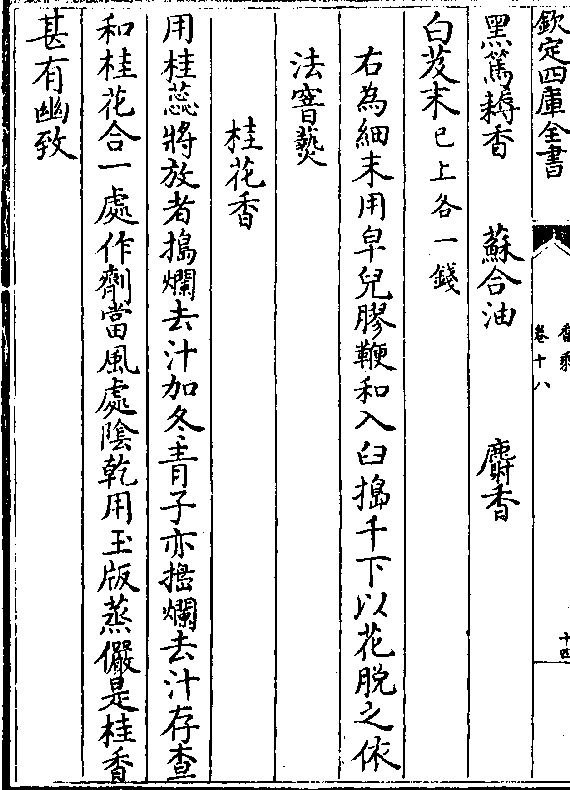 欽定四庫全書
香乘
卷十八
十四
黑篤耨香 蘇合油 麝香
白芨末已上各一錢
右為細末用皁兒膠鞭和入臼搗千下以花脫之依
法窨爇
桂花香
用桂蕊將放者搗爛去汁加冬青子亦搗爛去汁存查
和桂花合一處作劑當風處陰乾用玉版蒸儼是桂香
甚有幽致